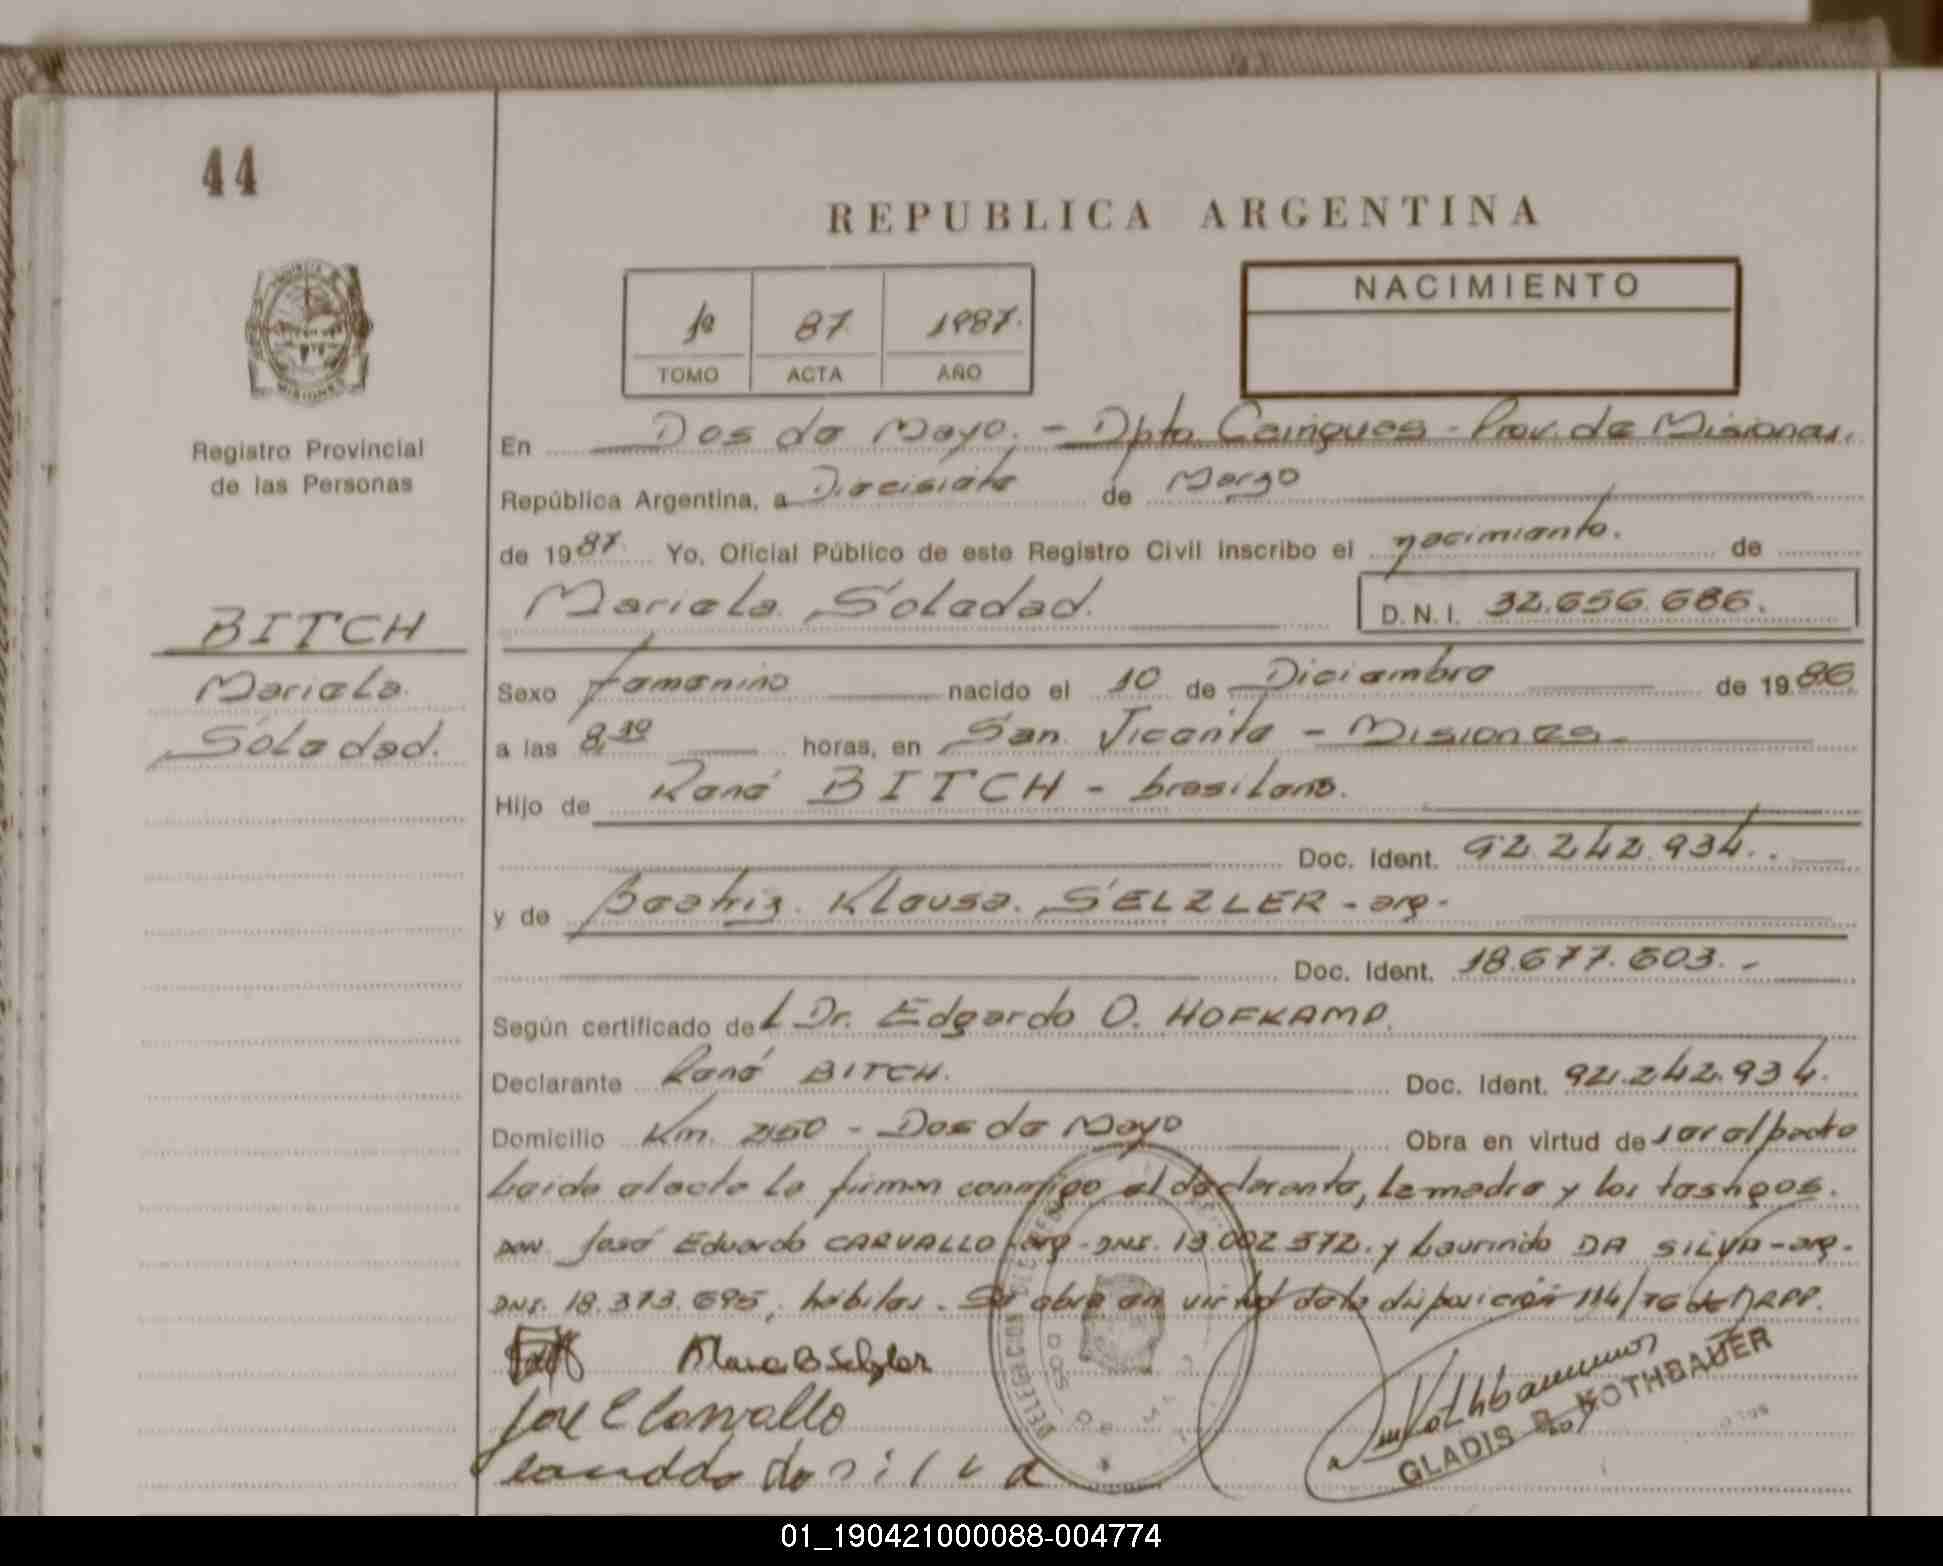 44
REPUBLICA ARGENTINA
1º 87 1987.
TOMO ACTA AÑO
NACIMIENTO
MISIONES
Registro Provincial
de las Personas
BITCH
Mariela
Soledad.
En Dos de Mayo. - Dpto Cainguas - Prov. de Misiones.
República Argentina, a Diecisiete de Marzo
de 1987. Yo, Oficial Público de este Registro Civil inscribo el nacimiento. de
Mariela Soledad. D.N.I. 32.656.686.
Sexo femenino nacido el 10 de Diciembre de 1986
a las 8,30 horas, en San Vicente - Misiones.
Hijo de René BITCH - brasileño.
Doc. Ident. 92.242.934.
y de Beatriz Klausa. SELZLER - arg.
Doc. Ident. 18.677.603.-
Según certificado del Dr. Edgardo O. HOFKAMP.
Declarante René BITCH. Doc. Ident. 92.242.934.
Domicilio Km. - Dos de Mayo Obra en virtud de
Leida el acta la firman conmigo el declarante, la madre y los testigos.
Don José Eduardo CARVALLO - arg - DNI. 13.002.372. y Laurindo DA SILVA - arg.
DNI. 18.373.695, hábiles. Se obra en virtud de la disposición 114/76
Selzler
José E Carvallo
da silva
DELEGACION DOS DE MAYO
GLADIS KOTHBAUER
01_190421000088-004774